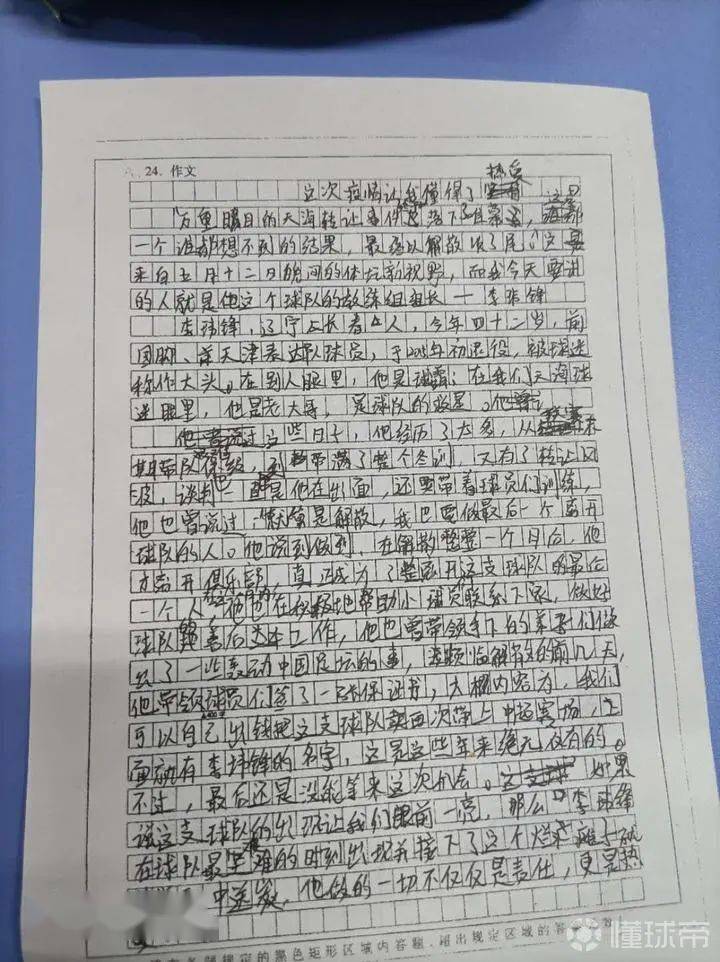 24. 作文
这次疫情让我懂得了 热爱
万众瞩目的天海转让事件落下帷幕了,这是
一个谁都想不到的结果,最终以解散收了尾。这是
来自五月十二日晚间的体坛新视野,而我今天要讲
的人就是他这个球队的教练组组长——李玮锋
李玮锋,辽宁长春人,今年四十二岁,前
国脚、前天津泰达队球员,于2015年初退役,被球迷
称作大头。在别人眼里,他是球霸;在我们天海球
迷眼里,他是老大哥,是球队的救星。
这些日子,他经历了太多,从
期带队保级,到带满了整个冬训,又有了转让风
波,谈判一直是他在出面,还要带着球员们训练,
他也曾说过:就算是解散,我也要做最后一个离开
球队的人。他说到做到,在解散整整一个月后,他
才离开俱乐部,真正成为了整离开这支球队的最后
一个人,他也在积极地帮助小球员联系下家,做好
球队的善后这本工作,他也曾带领手下的弟子们做
出了一些轰动中国足坛的事,濒临解散的前几天,
他带领球员们签了一份保证书,大概内容为,我们
可以自己出钱把这支球队再次带上中超赛场,上
面就有李玮锋的名字,这是这些年来绝无仅有的。
不过,最后还是没能等来这次机会。如果
说这支球队的出现让我们眼前一亮,那么李玮锋
在球队最困难的时刻出现并接下了这个烂摊子就
中送炭,他做的一切不仅仅是责任,更是热
规定的黑色矩形区域内答题,超出规定区域的答
懂球帝